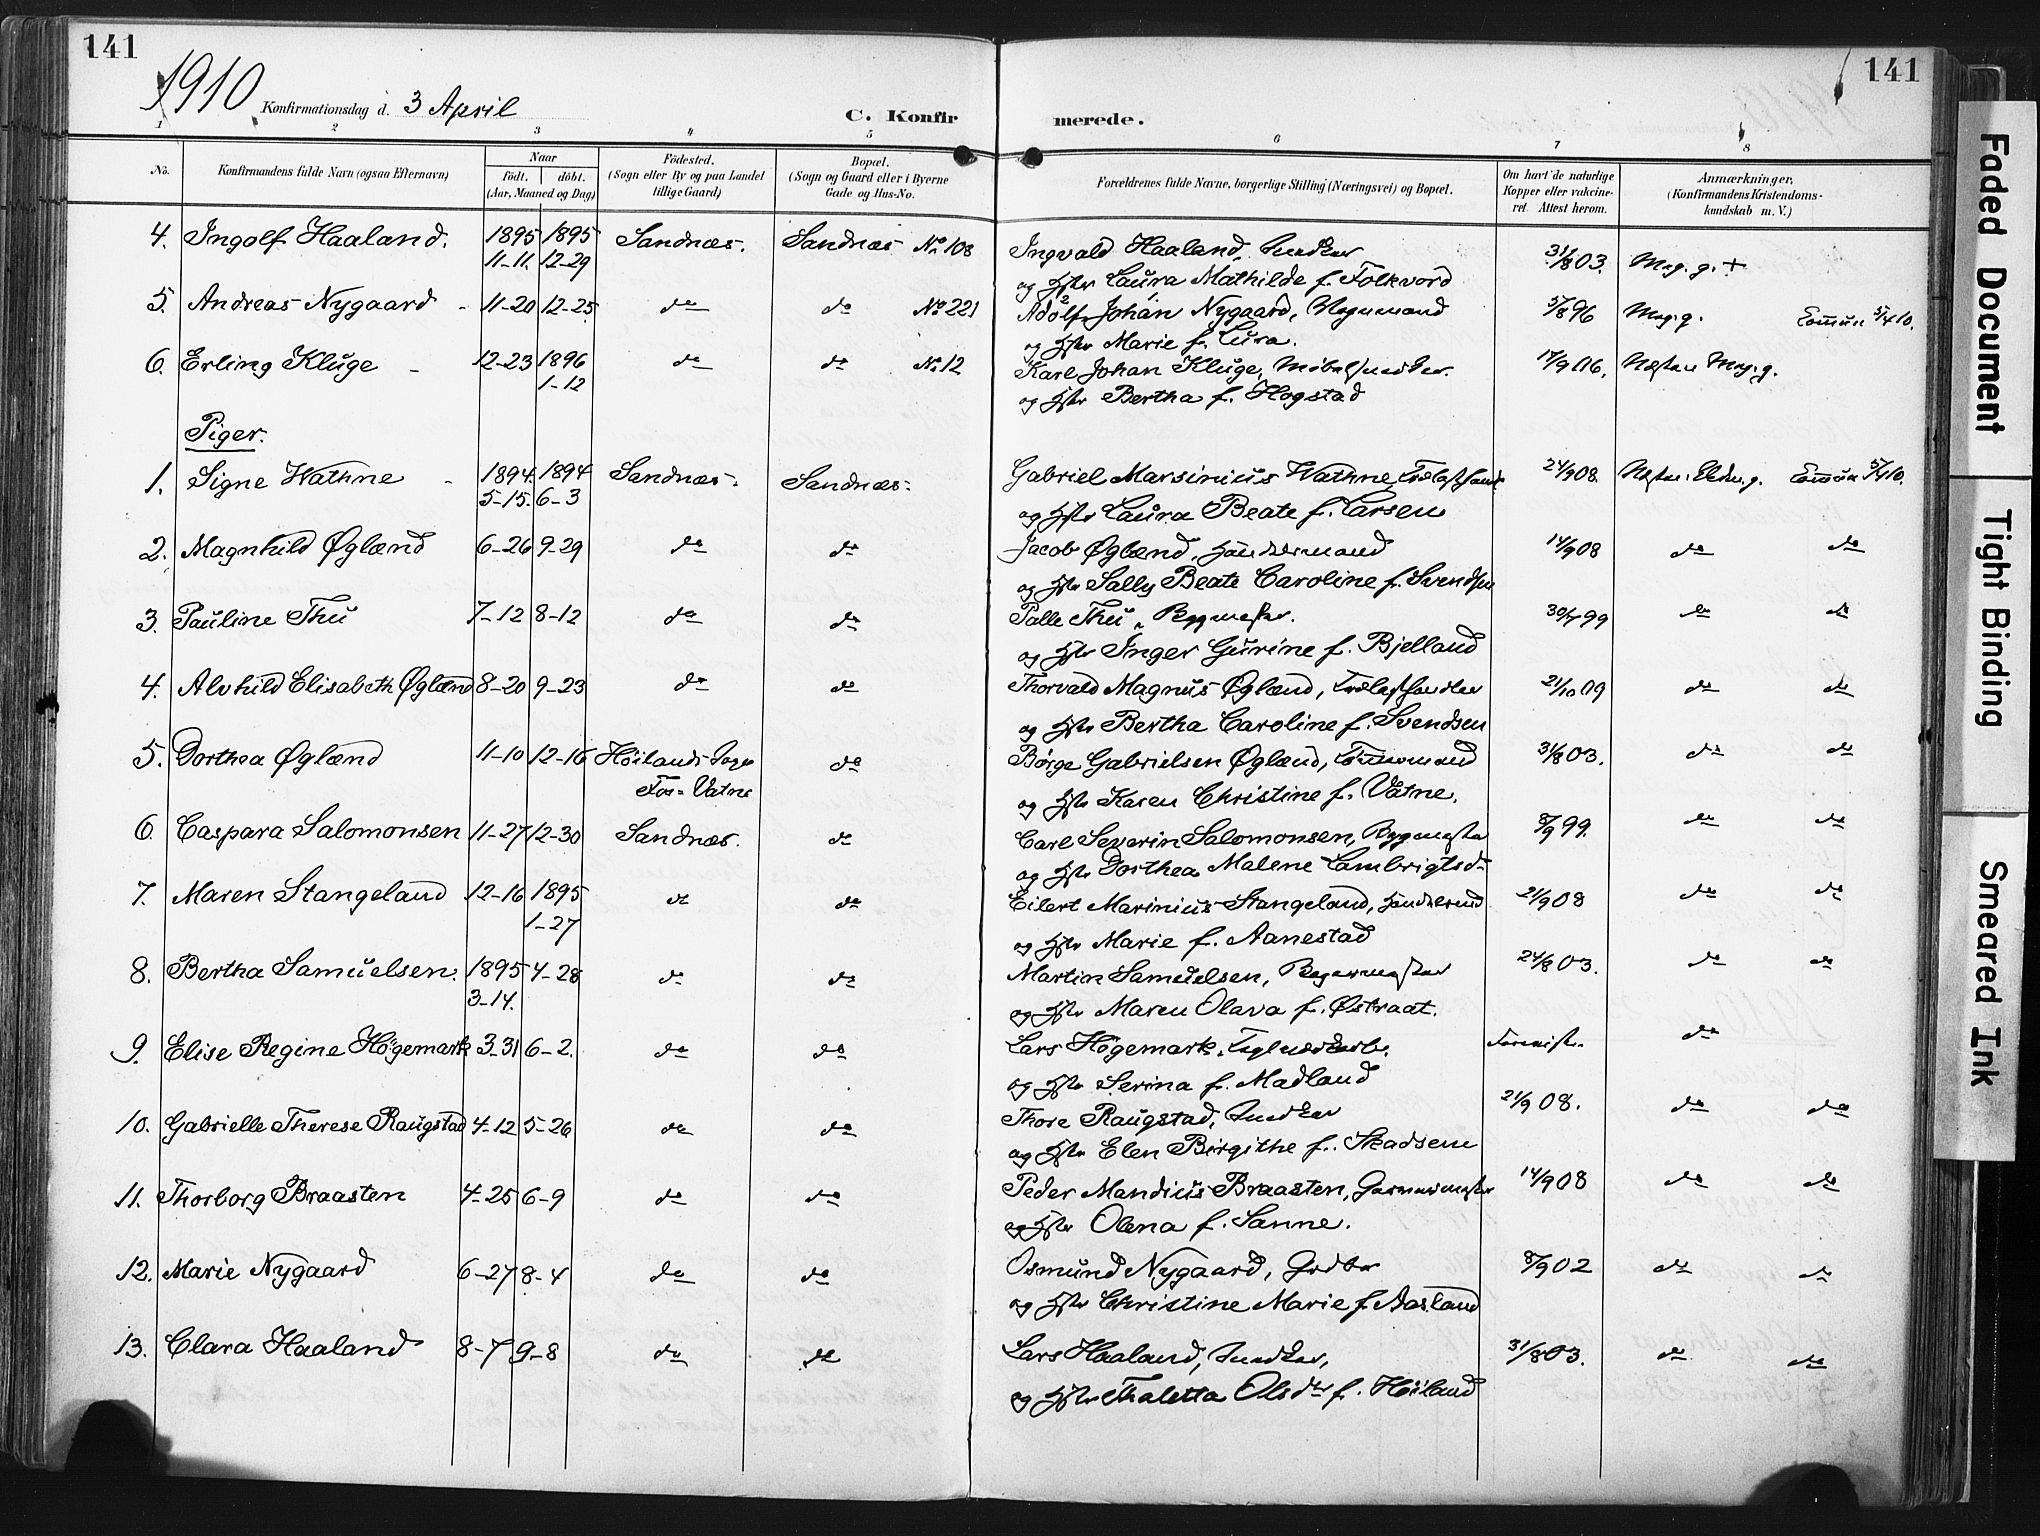 141
141
1910 Konfirmationsdag d. 3 April
C. Konfirmerede.
1 2 3 4 5 6 7 8
No.
Konfirmandens fulde Navn (ogsaa Efternavn)
Naar
födt. döbt.
(Aar, Maaned og Dag)
Födested.
(Sogn eller By og paa Landet
tillige Gaard)
Bopæl.
(Sogn og Gaard eller i Byerne
Gade og Hus-No.
Forældrenes fulde Navne, borgerlige Stilling (Næringsvei) og Bopæl.
Om havt de naturlige
Kopper eller vakcine-
ret. Attest herom.
Anmærkninger,
(Konfirmandens Kristendoms-
kundskab m. V.)
4. Ingolf Haaland. 1895 1895 Sandnæs. Sandnæs No 108 Ingvald Haaland, Snedker 31/8 03. Meg. g. +
11-11. 12-29 og Hstr Laura Mathilde f. Folkvord
5. Andreas Nygaard 11-20 12-25 do do No 221 Adolf Johan Nygaard, Vognmand 5/8 96 Meg. g.
og Hstr Marie f. Lura.
6. Erling Kluge 12-23 1896 do do No 12 Karl Johan Kluge, Møbelsnedker. Næsten Meg. g.
1-12 og Hstr Bertha f. Hogstad
Piger.
1. Signe Wathne 1894 1894 Sandnæs. Sandnæs. Gabriel Marsinius Wathne, 24/9 08.
5-15. 6-3 og Hstr Laura Beate f. Larsen
2. Magnhild Øglænd 6-26 9-29 do do Jacob Øglænd, Handelsmand 14/9 08 do do
og Hstr Sally Beate Caroline f. Svendsen
3. Pauline Thu 7-12 8-12 do do Palle Thu, Bygmester. do do
og Hstr Inger Gurine f. Bjelland
4. Alvhild Elisabeth Øglænd 8-20 9-23 do do Thorvald Magnus Øglænd, Trælasthandler 21/10 09 do do
og Hstr Bertha Caroline f. Svendsen
5. Dorthea Øglænd 11-10 12-16 Høilands Sogn do Børge Gabrielsen Øglænd, 31/8 03. do do
Fos-Vatne og Hstr Karen Christine f. Vatne.
6. Caspara Salomonsen 11-27 12-30 Sandnæs. do Carl Severin Salomonsen, Bygmester 8/9 99. do do
og Hstr Dorthea Malene Lambrigtsd.
7. Maren Stangeland 12-16 1895 do do Eilert Marinius Stangeland, 21/9 08 do do
1-27 og Hstr Marie f. Aanestad
8. Bertha Samuelsen. 1895 4-28 do do Martin Samuelsen, 24/8 03. do do
3-14. og Hstr Maren Olava f. Østraat.
9. Elise Regine Högemark 3-31 6-2. do do Lars Högemark, do
og Hstr Serina f. Madland
10. Gabrielle Therese Raugstad 4-12 5-26 do do Thore Raugstad, Snedker 21/9 08. do do
og Hstr Elen Birgithe f. Skadsem
11. Thorborg Braasten 4-25 6-9 do do Peder Mandius Braasten, Garvermester 14/9 08 do do
og Hstr Olena f. Sanne.
12. Marie Nygaard 6-27 8-4 do do Osmund Nygaard, Grdbr 8/9 02 do do
og Hstr Christine Marie f. Aasland
13. Clara Haaland 8-7 9-8 do do Lars Haaland, Snedker, 31/8 03. do do
og Hstr Thaletta Olsdtr f. Høiland
Faded Document
Tight Binding
Smeared Ink